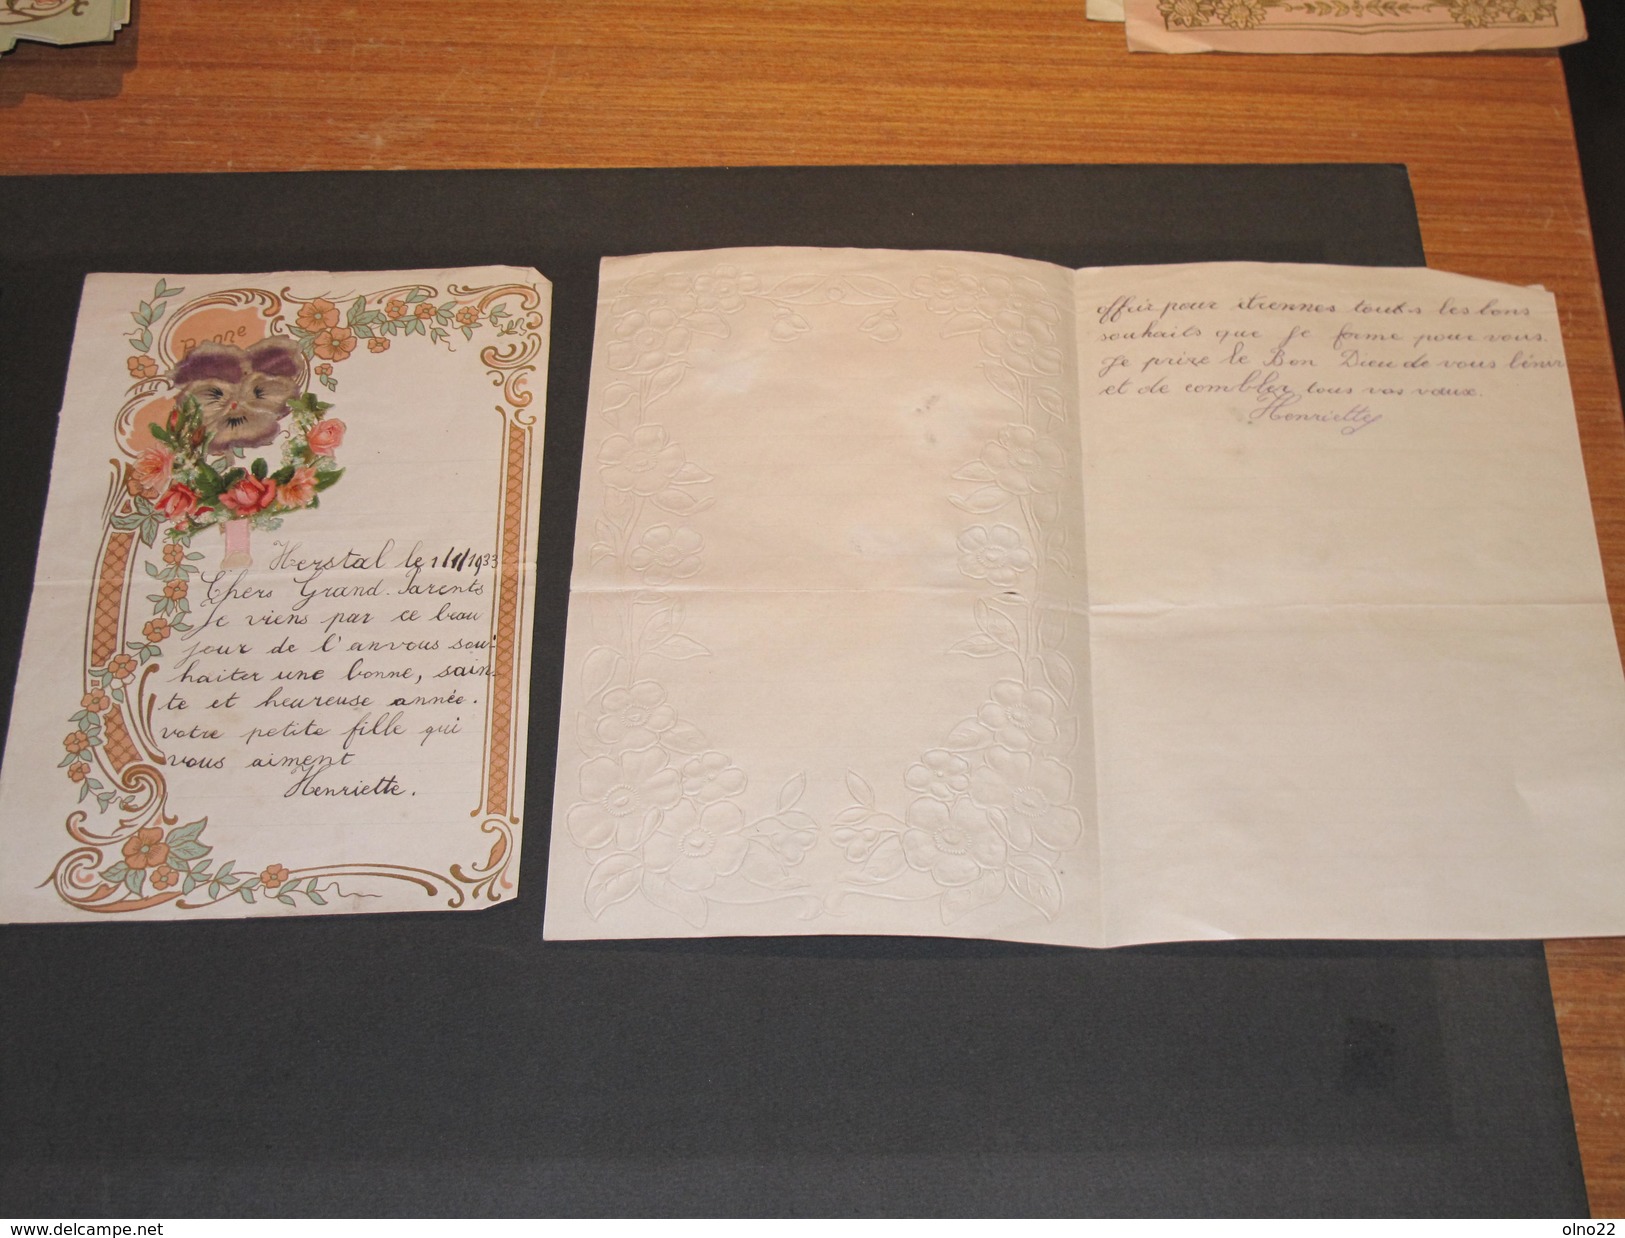 Bonne
Herstal le 1/1/1933
Chers Grand-Parents
Je viens par ce beau
jour de l'anvous sou-
haiter une bonne, sain-
te et heureuse année.
votre petite fille qui
vous aiment
Henriette.
offrir pour étrennes toutes les bons
souhaits que je forme pour vous.
Je prize le Bon Dieu de vous bénir
et de combler tous vos vœux.
Henriette
www.delcampe.net
olno22